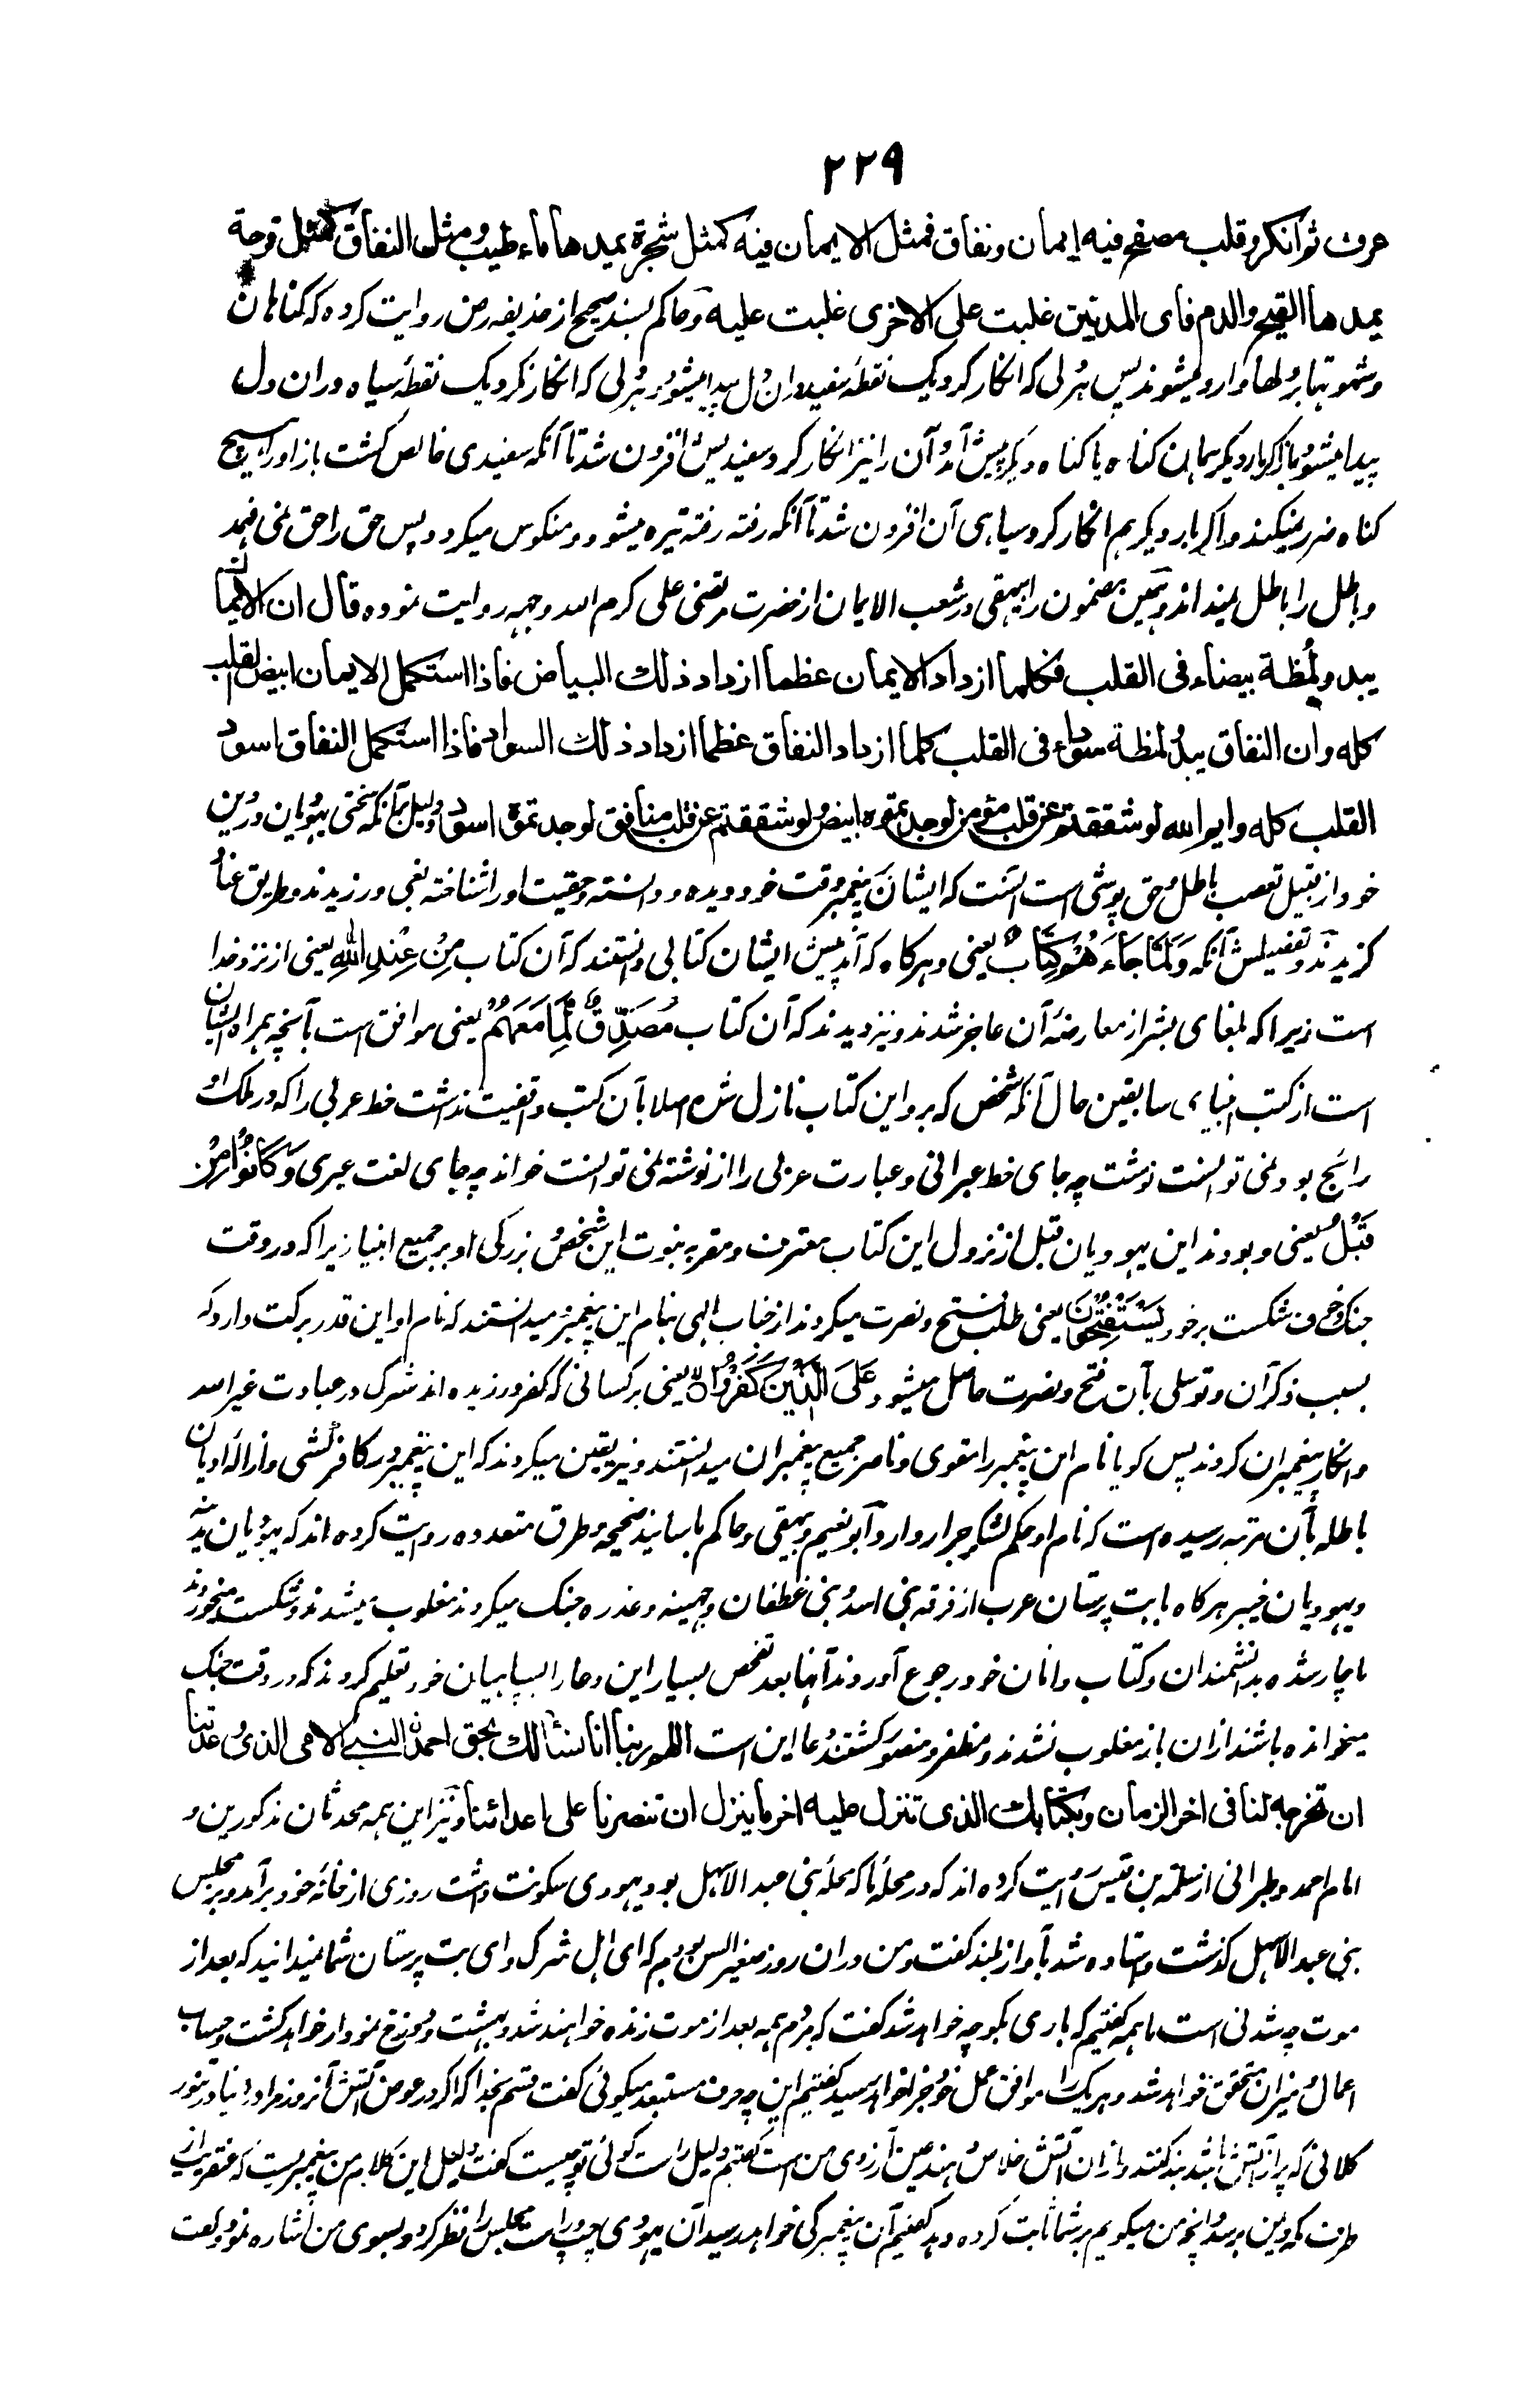 ۲۲۹
عرف ثم انکر و قلب مصفح فیه ایمان و نفاق فمثل الایمان فیه کمثل شجرة یمدها ماء طیب و مثل النفاق کمثل قرحة
یمدها القیح و الدم فای المدتین غلبت علی الاخری غلبت علیه و حاکم بسند صحیح از حذیفه رض روایت کرده که گناهان
و شهوتها بر دلها وارد میشوند پس هر دلی که انکار کرد یک نقطهٔ سفید در ان دل پیدا میشود و هر دلی که انکار نکرد یک نقطهٔ سیاه در ان دل
پیدا میشود باز اگر بار دیگر همان گناه یا گناه دیگر پیش آمد و آن را نیز انکار کرد سفیدیش افزون شد تا آنکه سفیدی خالص گشت باز او را هیچ
گناه ضرر نمیکند و اگر بار دیگر هم انکار نکرد سیاهی آن افزون شد تا آنکه رفته رفته تیره میشود و منکوس میگردد پس حق را حق نمی فهمد
و باطل را باطل نمیداند و همین مضمون را بیهقی در شعب الایمان از حضرت مرتضی علی کرم الله وجهه روایت نموده قال ان الایمان
یبدو لُمظة بیضاء فی القلب فکلما ازداد الایمان عظما ازداد ذلک البیاض فاذا استکمل الایمان ابیض القلب
کله و ان النفاق یبدو لمظة سوداء فی القلب کلما ازداد النفاق عظما ازداد ذلک السواد فاذا استکمل النفاق اسود
القلب کله و ایم الله لو شققتم عن قلب مؤمن لوجدتموه ابیض و لو شققتم عن قلب منافق لوجدتموه اسود و دلیل برآنکه سختی یهودیان در دین
خود از قبیل تعصب باطل و حق پوشی است آنست که ایشان پیغمبر وقت خود دیده و دانسته و حقیت او را شناخته بغی ورزیدند و طریق عناد
گزیدند و تفصیلش آنکه وَلَمَّا جَاءَهُمْ كِتَابٌ یعنی و هرگاه که آمد پیش ایشان کتابی دانستند که آن کتاب مِنْ عِنْدِ اللهِ یعنی از نزد خدا
است زیرا که بلغای بشر از معارضهٔ آن عاجز شدند و نیز دیدند که آن کتاب مُصَدِّقٌ لِمَا مَعَهُمْ یعنی موافق است بآنچه همراه ایشان
است از کتب انبیای سابقین حال آنکه شخص که برو این کتاب نازل شده اصلا بآن کتب واقفیت نداشت خط عربی را که در ملک او
رائج بود نمی توانست نوشت چه جای خط عبرانی و عبارت عربی را از نوشته نمی توانست خواند چه جای لغت عبری وَكَانُوا مِنْ
قَبْلُ یعنی و بودند این یهودیان قبل از نزول این کتاب معترف و مقر به نبوت این شخص و بزرگی او بر جمیع انبیا زیرا که در وقت
جنگ و خوف شکست بر خود يَسْتَفْتِحُونَ یعنی طلب فتح و نصرت میکردند از جناب الهی بنام این پیغمبر و میدانستند که نام او این قدر برکت دارد که
بسبب ذکر آن و توسل بآن فتح و نصرت حاصل میشود عَلَى الَّذِينَ كَفَرُوا یعنی بر کسانی که کفر ورزیده اند بشرک در عبادت غیر الله
و انکار پیغمبران کردند پس گویا نام این پیغمبر را مقوی و ناصر جمیع پیغمبران میدانستند و نیز یقین میکردند که این پیغمبر در کافر کشی و ازالهٔ ادیان
باطله بآن مرتبه رسیده است که نام او حکم لشکر جرار دارد و ابو نعیم و بیهقی و حاکم باسانید صحیحه و طرق متعدده روایت کرده اند که یهودیان مدینه
و یهودیان خیبر هرگاه با بت پرستان عرب از فرقه بنی اسد و بنی غطفان و جهینه و عذره جنگ میکردند مغلوب میشدند و شکست میخوردند
ناچار شده بدانشمندان و کتاب دانان خود رجوع آوردند آنها بعد تفحص بسیار این دعا را بسپاهیان خود تعلیم کردند که در وقت جنگ
میخوانده باشند ازان باز مغلوب نشدند و مظفر و منصور گشتند دعا این است اللهم ربنا انا نسألک بحق احمد النبی الامی الذی وعدتنا
ان تخرجه لنا فی اخر الزمان و بکتابک الذی تنزل علیه اخر ما ینزل ان تنصرنا علی اعدائنا و نیز این همه محدثان مذکورین و
امام احمد و طبرانی از سلمه بن قیس روایت کرده اند که در محلهٔ ما که محلهٔ بنی عبد الاشهل بود یهودی سکونت داشت روزی از خانهٔ خود برآمد و بر مجلس
بنی عبد الاشهل گذشت و ستاده شد بآواز بلند گفت و من دران روز صغیر السن بودم که ای اهل شرک و ای بت پرستان شما نمیدانید که بعد از
موت چه شدنی است ما همه گفتیم که باری بگو چه خواهد شد گفت که مردم همه بعد از موت زنده خواهند شد و بهشت و دوزخ نمودار خواهد گشت و حساب
اعمال و میزان متحقق خواهد شد و هر یک را موافق عمل خود جزا خواهد رسید گفتیم این چه حرف مستبعد میگوئی گفت قسم بخدا که اگر در عوض آتش آنروز مرا در دنیا در تنور
کلانی که پر از آتش باشد بند کنند و ازان آتش خلاص دهند عین آرزوی من است گفتیم دلیل راست گوئی تو چیست گفت دلیل این کلام من پیغمبریست که عنقریب از
طرف مکه و یمن برسد و آنچه من میگویم بر شما ثابت کرده دهد گفتیم آن پیغمبر کی خواهد رسید آن یهودی چپ و راست مجلس را نظر کرد و بسوی من اشاره نمود و گفت